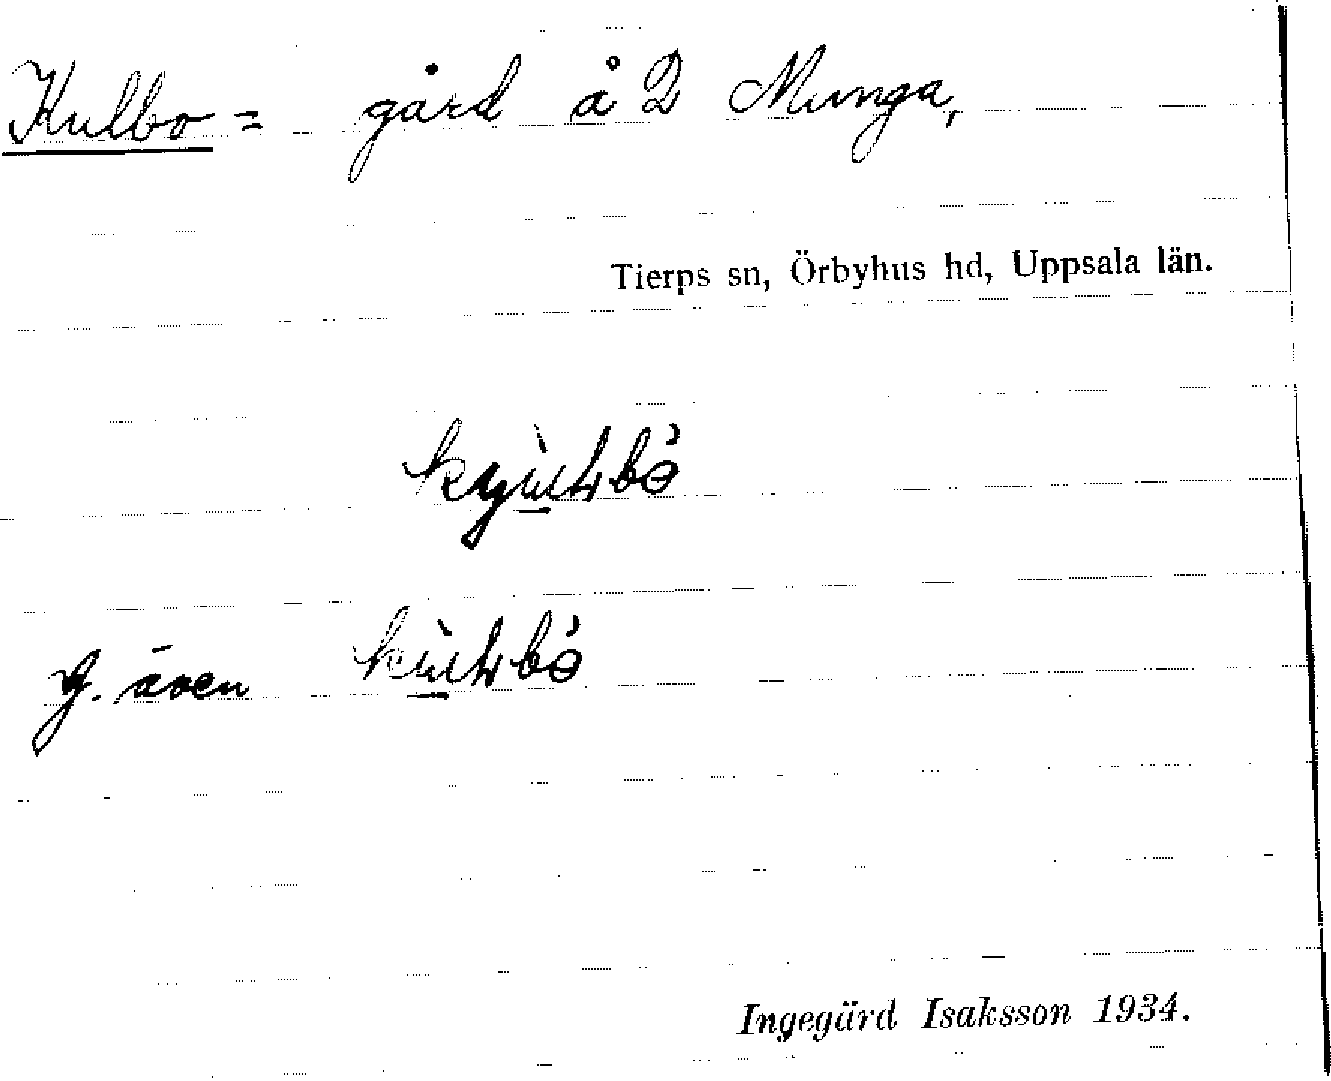 Kulbo = gård å 2 Munga,
Tierps sn, Örbyhus hd, Uppsala län.
g. även
Ingegärd Isaksson 1934.